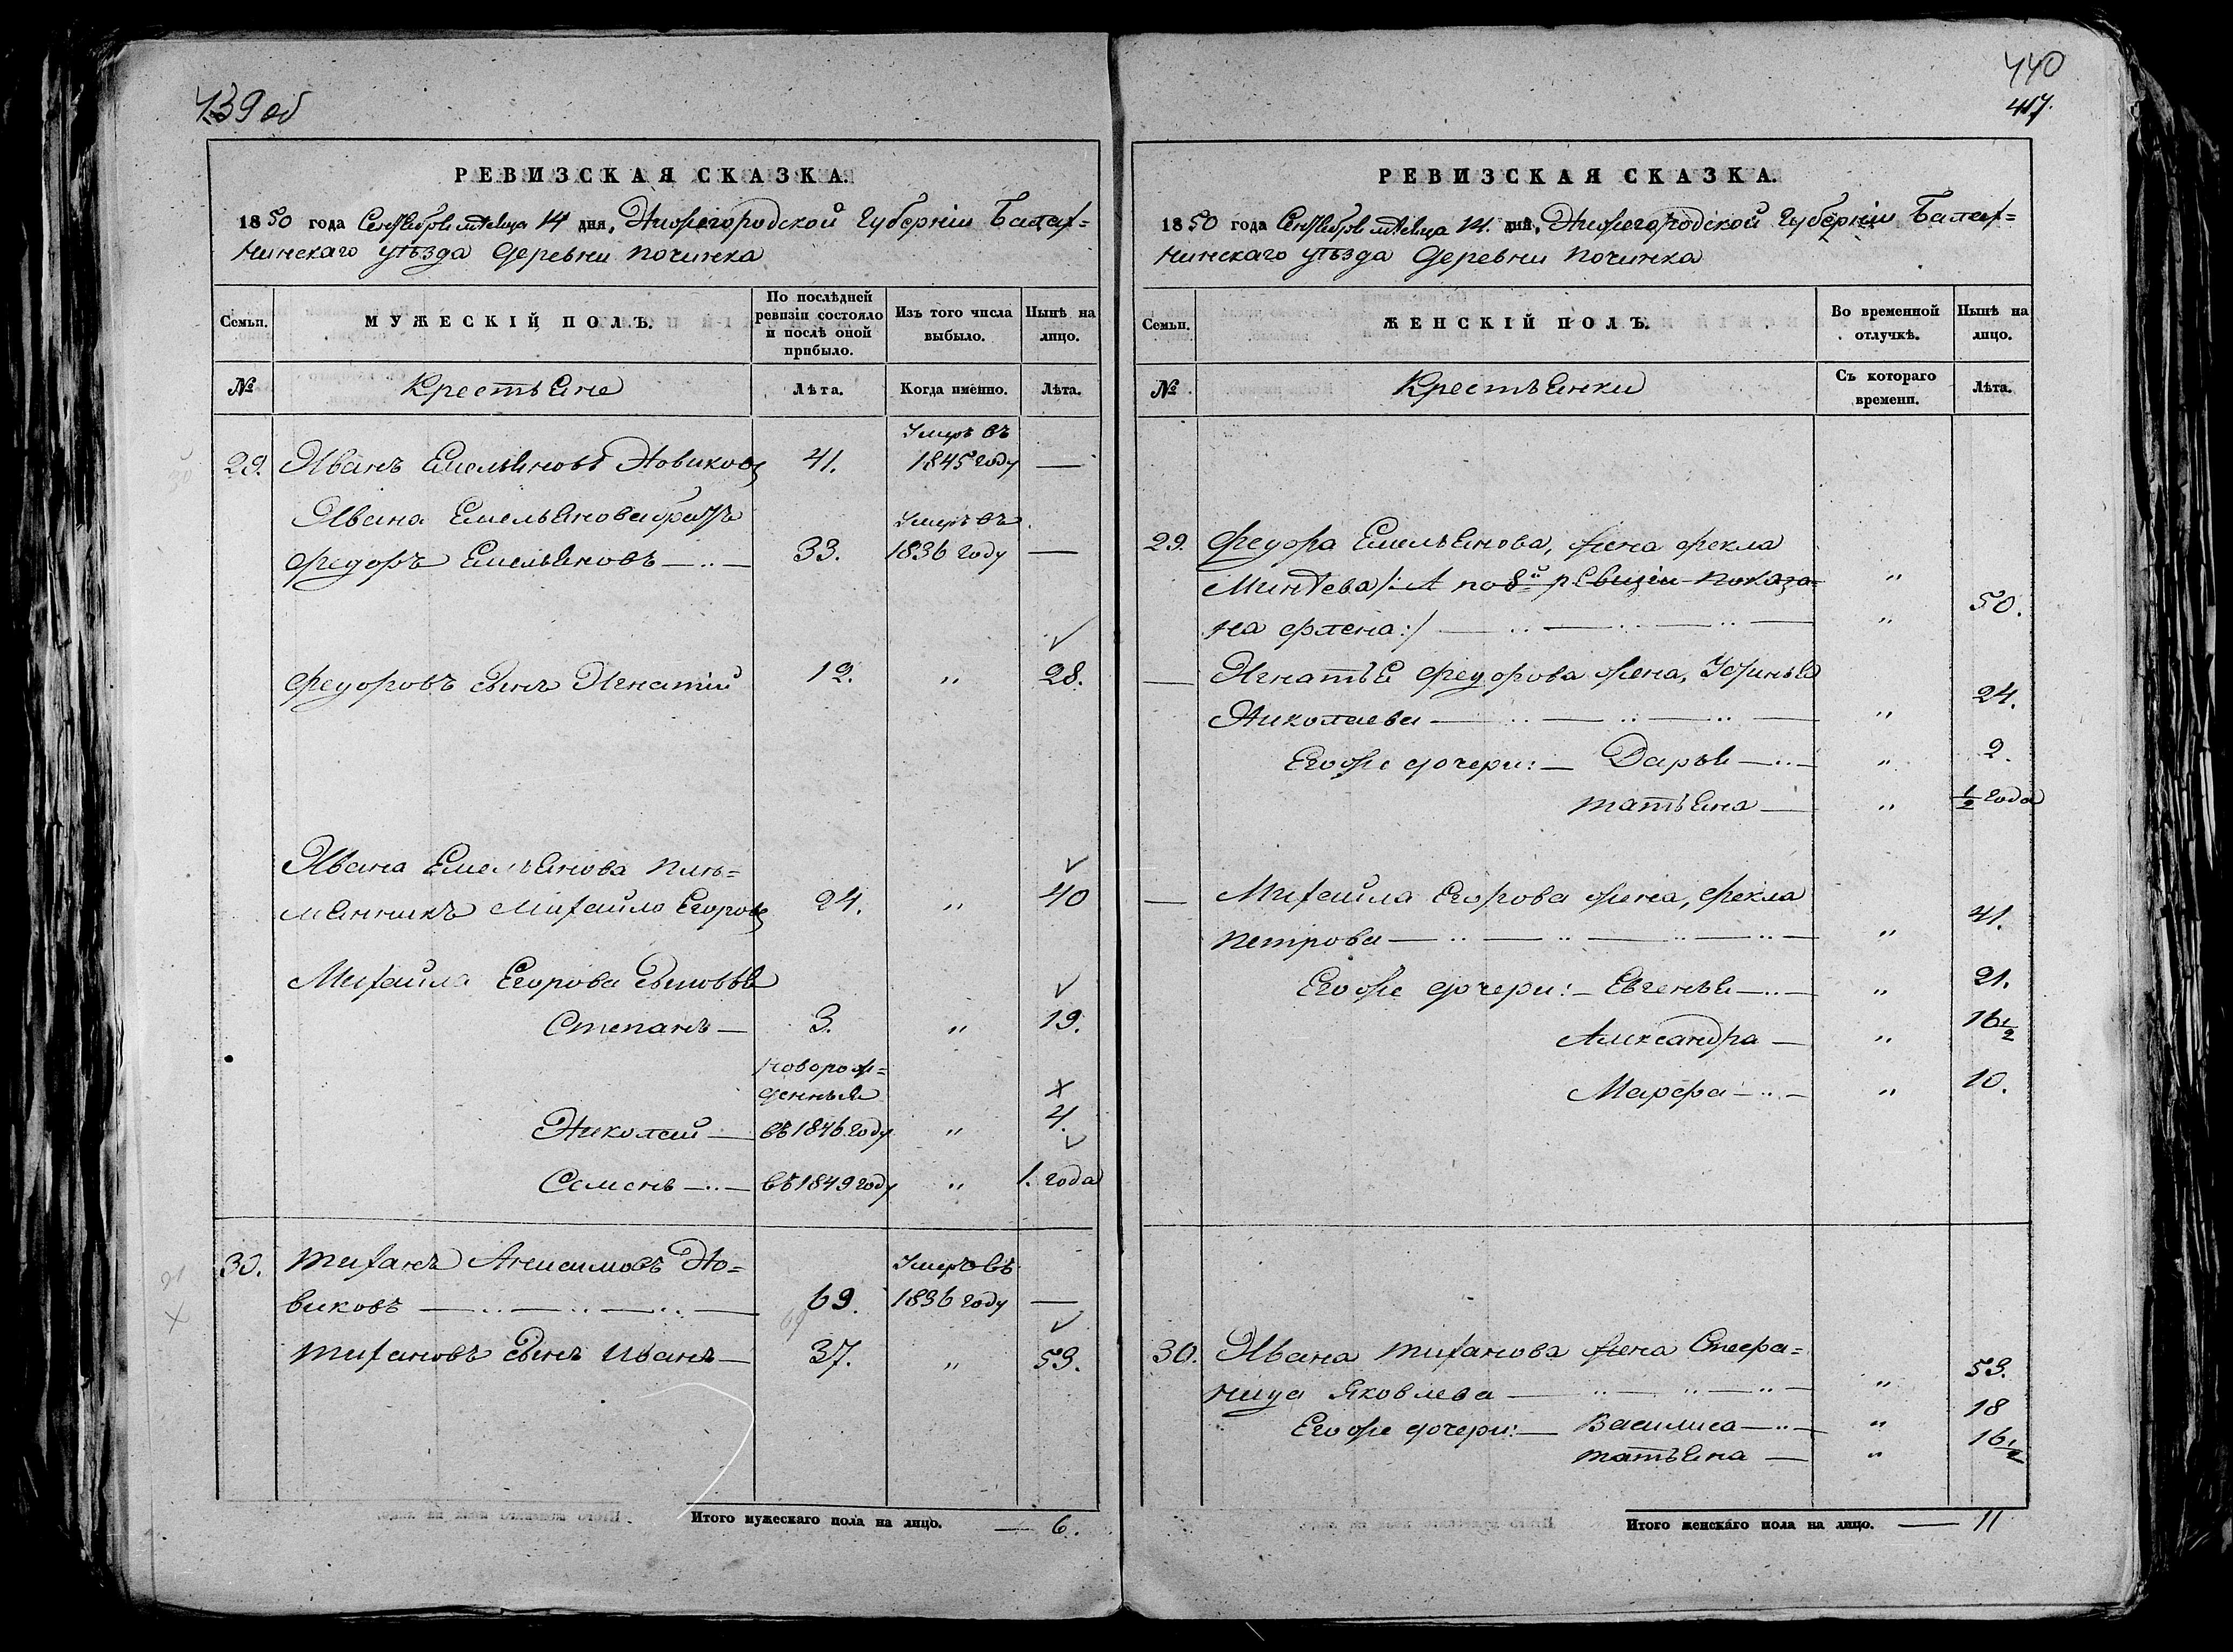 439 об
РЕВИЗСКАЯ СКАЗКА.
1850 года Сентября мѣсяца 14 дня, Нижегородской Губерніи Балах=
нинскаго уѣзда деревни Починка
Семьи.
МУЖЕСКІЙ ПОЛЪ.
По послѣдней ревизіи состояло и послѣ оной прибыло.
Изъ того числа выбыло.
Нынѣ на лицо.
№
Крестьяне
Лѣта.
Когда именно.
Лѣта.
Умеръ въ
29. Иванъ Емельяновъ Новиковъ 41. 1845 году —
Ивана Емельянова братъ Умеръ въ
Федоръ Емельяновъ — 33. 1836 году —
Федоровъ сынъ Игнатий 12. " 28.
Ивана Емельянова плѣ=
мянникъ Михайло Егоровъ 24. " 40
Михайла Егорова сыновья
Степанъ — 3. " 19.
новорож=
денныя
Николай — въ 1846 году " 4.
Семенъ — въ 1849 году " 1. года
30. Тиханъ Анисимовъ Но= Умеръ въ
виковъ — 69. 1836 году —
Тихановъ сынъ Иванъ — 37. " 53.
Итого мужескаго пола на лицо. — 6.
440
417.
РЕВИЗСКАЯ СКАЗКА.
1850 года Сентября мѣсяца 14. дня, Нижегородской Губерніи Балах=
нинскаго уѣзда деревни Починка
Семьи.
ЖЕНСКІЙ ПОЛЪ.
Во временной отлучкѣ.
Нынѣ на лицо.
№
Крестьянки
Съ котораго времени.
Лѣта.
29. Федора Емельянова, жена Фекла
Минѣева /: А по 8й ревизіи показа= "
на Флена :/ — " 50.
— Игнатья Федорова жена, Уфинья
Николаева — " 24.
Его же дочери: — Дарья — " 2.
Татьяна — " ½ года
— Михайла Егорова жена, Фекла
Петрова — " 41.
Его же дочери: — Евгенья — " 21.
Александра — " 16½
Марфа — " 10.
30. Ивана Тиханова жена Стефа=
нида Яковлева — " 53.
Его же дочери: — Василиса — " 18
Татьяна — " 16½
Итого женскаго пола на лицо. — 11